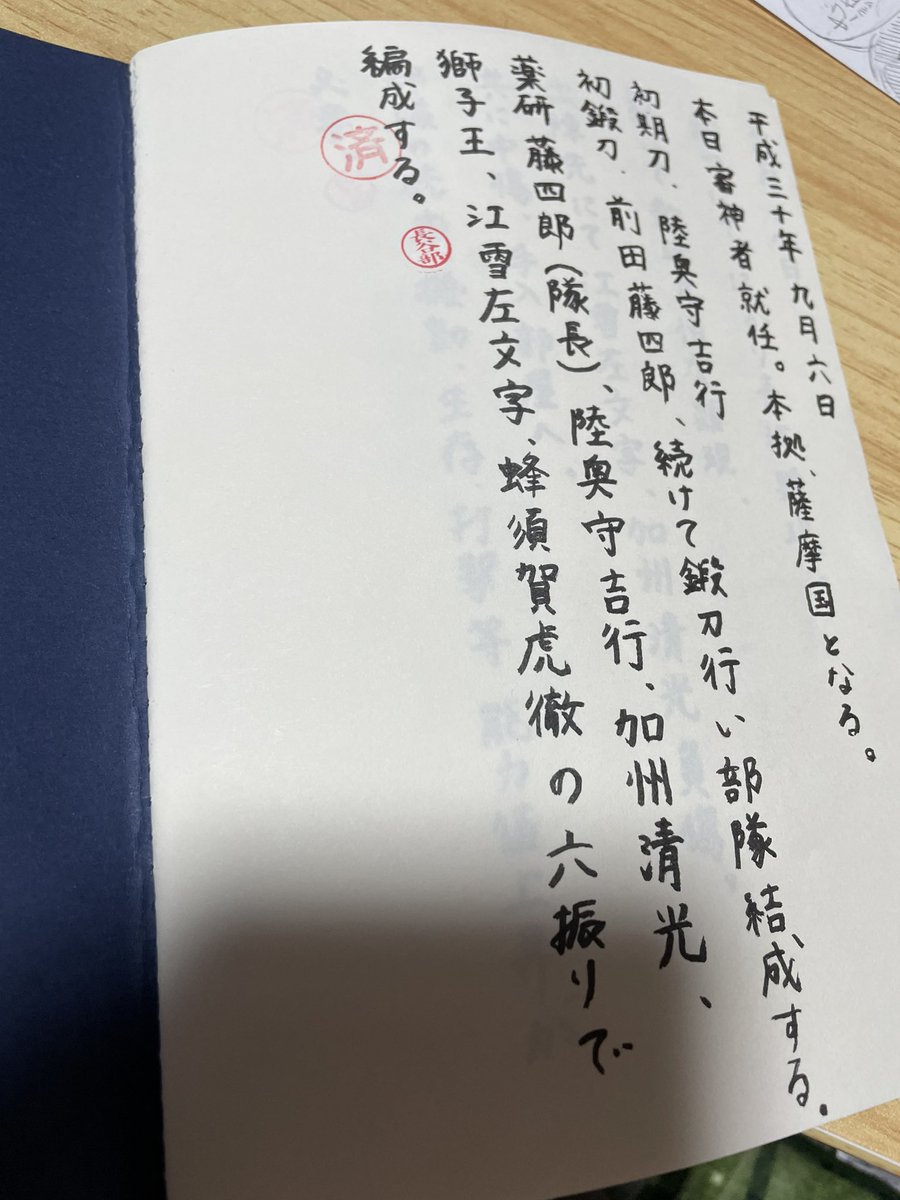 平成三十年九月六日
本日審神者就任。本拠、薩摩国となる。
初期刀、陸奥守吉行
初鍛刀、前田藤四郎、続けて鍛刀行い部隊結成する。
薬研藤四郎(隊長)、陸奥守吉行、加州清光、
獅子王、江雪左文字、蜂須賀虎徹の六振りで
編成する。
済
長谷部